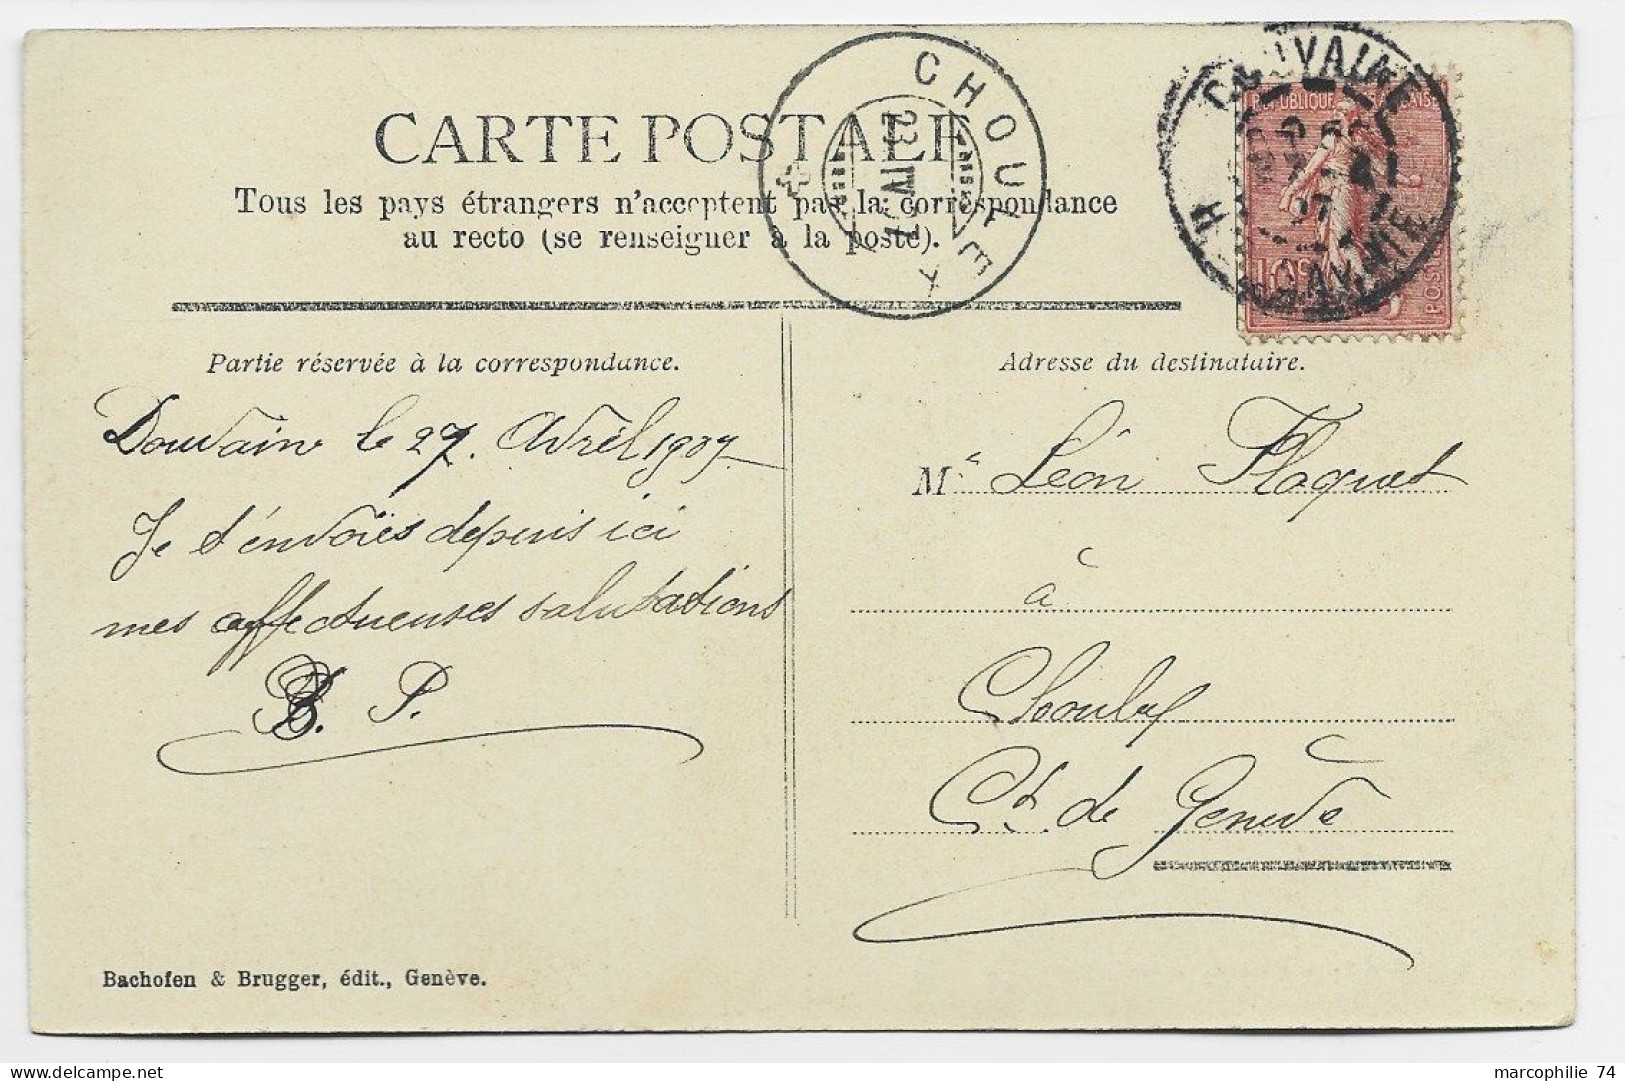 CARTE POSTALE
Tous les pays étrangers n'acceptent pas la correspondance
au recto (se renseigner à la poste).
CHOULEX
23 IV 07
DOUVAINE
Hte SAVOIE
REPUBLIQUE FRANÇAISE
POSTES
Partie réservée à la correspondance.
Adresse du destinataire.
Douvain le 27. Avril 1907
Je t'envoies depuis ici
mes affectueuses salutations
B. P.
Mr Léon Floquet
à
Chouley
Ct. de Genève
Bachofen & Brugger, édit., Genève.
marcophilie 74